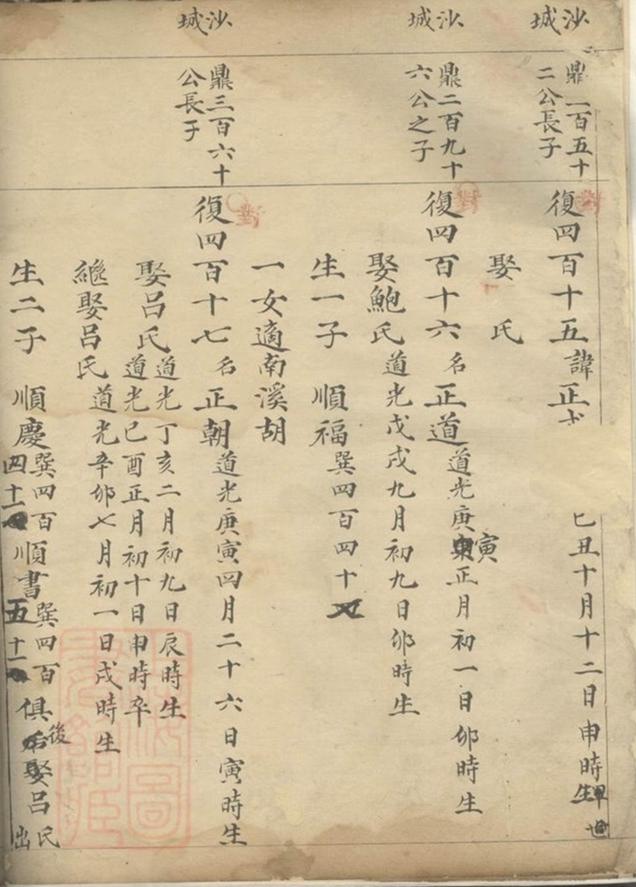 沙城
鼎二百五十二公長子
復四百十五諱正
己丑十月十二日申時生早世
娶 氏
沙城
鼎二百九十六公之子
復四百十六名正道道光庚寅正月初一日卯時生
娶鮑氏道光戊戌九月初九日卯時生
生一子 順福巽四百四十
一女適南溪胡
沙城
鼎三百六十公長子
復四百十七名正朝道光庚寅四月二十六日寅時生
娶呂氏道光丁亥二月初九日辰時生
道光己酉正月初十日申時卒
繼娶呂氏道光辛卯七月初一日戌時生
生二子 順慶巽四百四十一 順書巽四百五十一 俱後娶呂氏出
對
對
對